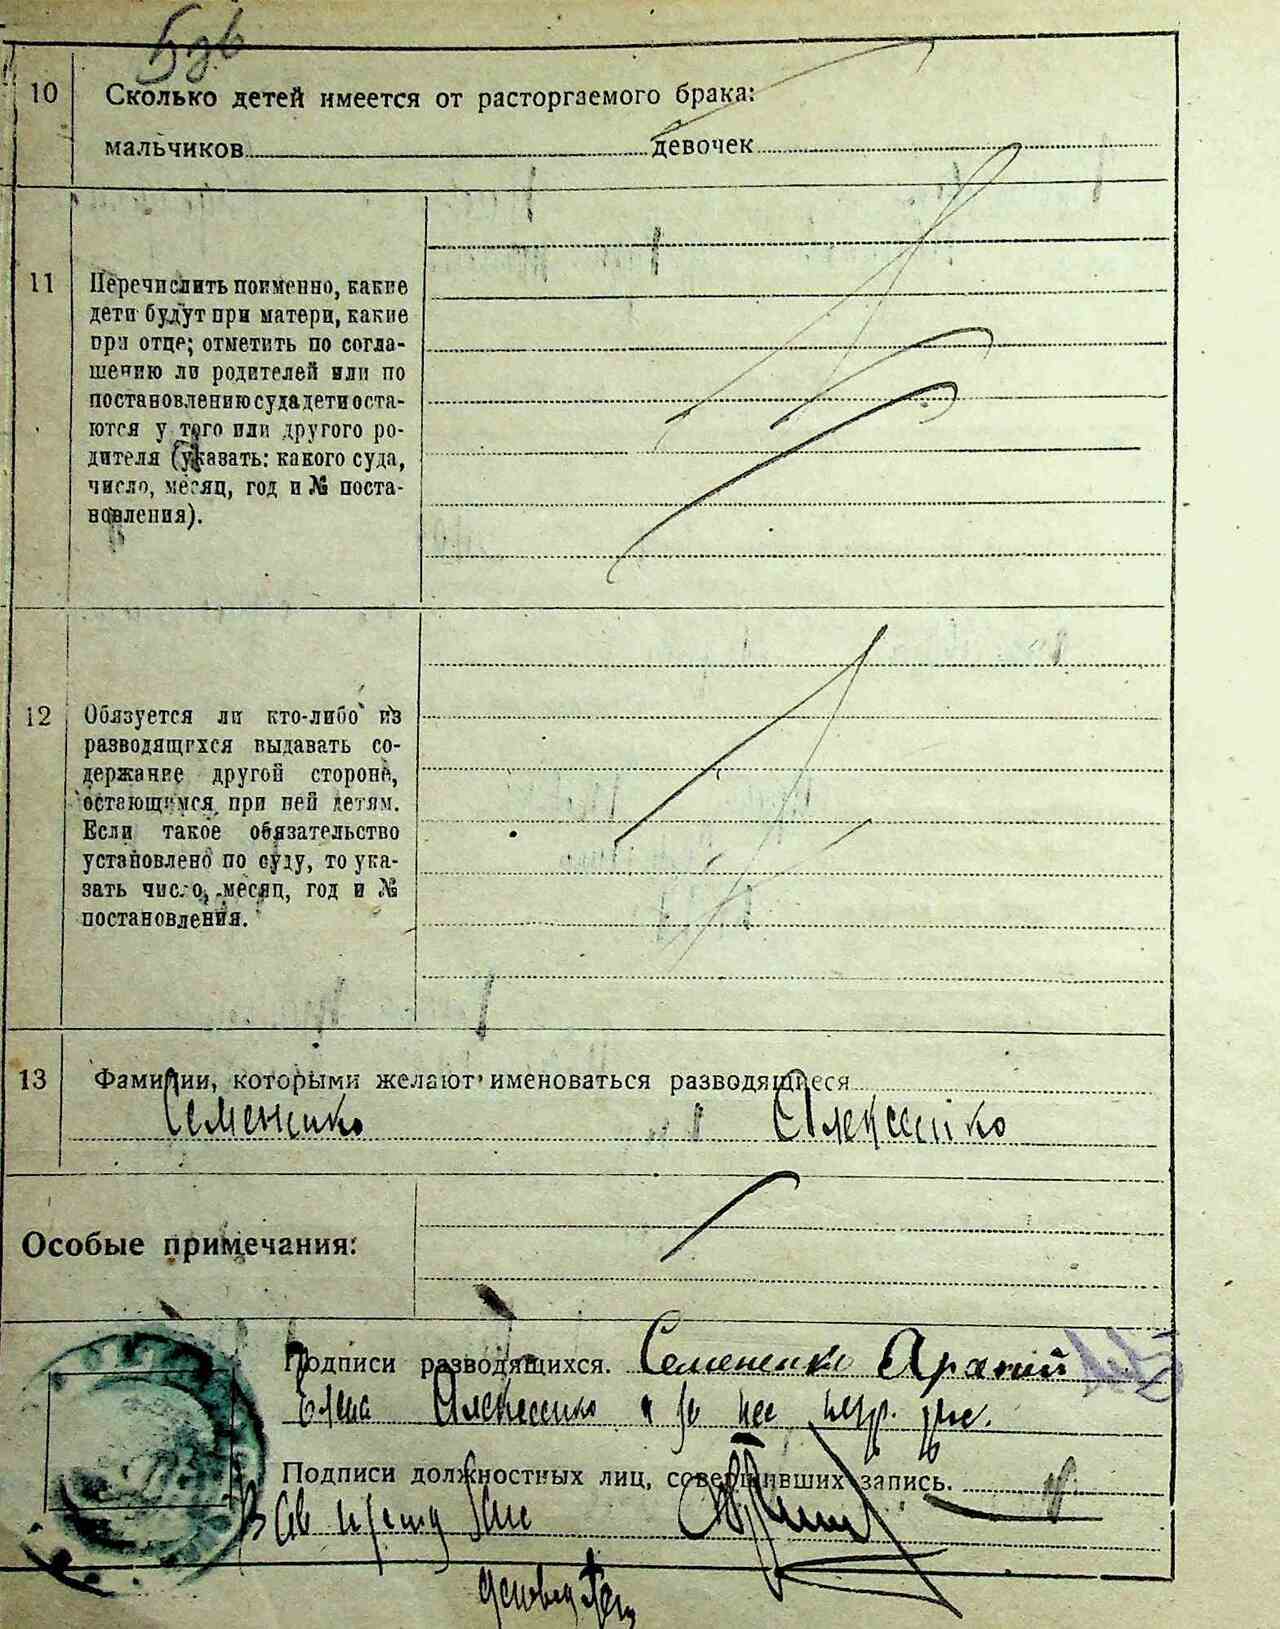 10 Сколько детей имеется от расторгаемого брака:
мальчиков девочек
11 Перечислить поименно, какие
дети будут при матери, какие
при отце; отметить по согла-
шению ли родителей или по
постановлению суда дети оста-
ются у того или другого ро-
дителя (указать: какого суда,
число, месяц, год и № поста-
новления).
12 Обязуется ли кто-либо из
разводящихся выдавать со-
держание другой стороне,
остающимся при ней детям.
Если такое обязательство
установлено по суду, то ука-
зать число, месяц, год и №
постановления.
13 Фамилии, которыми желают именоваться разводящиеся
Семененко Алексеенко
Особые примечания:
Подписи разводящихся. Семененко
Елена Алексеенко
Подписи должностных лиц, совершивших запись.